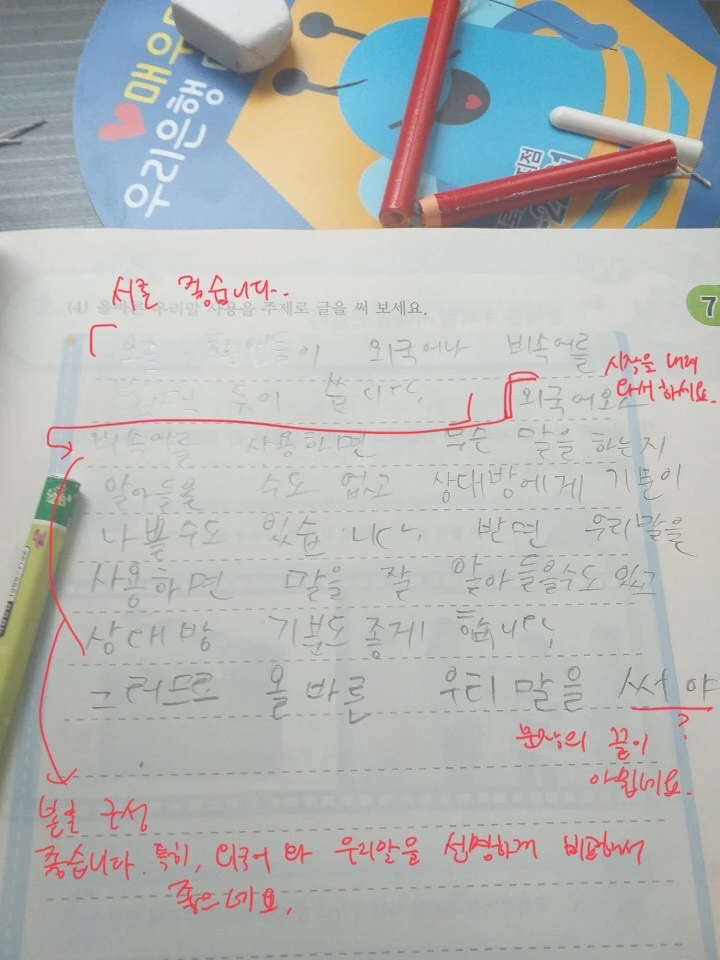 매우
우리은행
서론 좋습니다.
(4) 올바른 우리말 사용을 주제로 글을 써 보세요.
7
요즘 학생들이 외국어나 비속어를
듯이 씁니다.
시작을 내려
와서 하세요.
비속어를 사용하면 무슨 말을 하는지
알아들을 수도 없고 상대방에게 기분이
나쁠수도 있습니다. 반면 우리말을
사용하면 말을 잘 알아들을수도 있고
상대방 기분도 좋게 합니다.
그러므로 올바른 우리말을 써야
?
문장의 끝이
아쉽네요.
본론 구성
좋습니다. 특히, 외국어 와 우리말을 선명하게 비교해서
좋으네요.